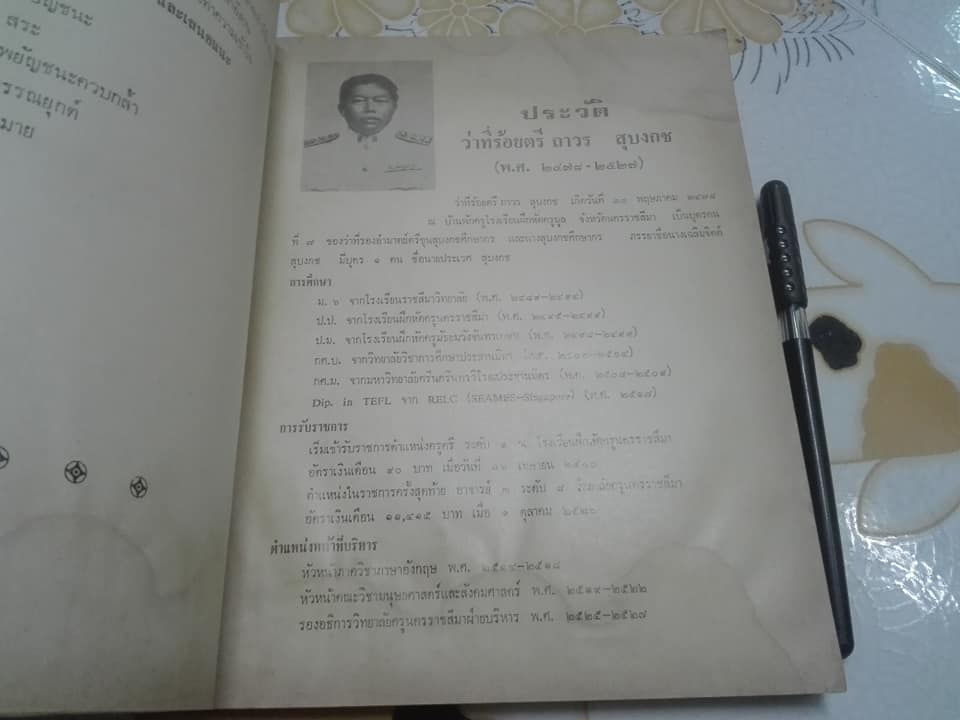 ัญชนะ
สระ
พยัญชนะควบกล้ำ
รรณยุกต์
มาย
และเสนอแนะ
ประวัติ
ว่าที่ร้อยตรี ถาวร สุบงกช
(พ.ศ. ๒๔๗๘-๒๕๒๗)
ว่าที่ร้อยตรี ถาวร สุบงกช เกิดวันที่ พฤษภาคม ๒๔๗๘
ณ บ้านพักครูโรงเรียนฝึกหัดครูมูล จังหวัดนครราชสีมา เป็นบุตรคน
ที่ ๗ ของว่าที่รองอำมาตย์ตรีขุนสุบงกชศึกษากร และนางสุบงกชศึกษากร ภรรยาชื่อนางเฉลิมจิตต์
สุบงกช มีบุตร ๑ คน ชื่อนายประเวศ สุบงกช
การศึกษา
ม. ๖ จากโรงเรียนราชสีมาวิทยาลัย (พ.ศ. ๒๔๘๙-๒๔๙๔)
ป.ป. จากโรงเรียนฝึกหัดครูนครราชสีมา (พ.ศ.
ป.ม. จากโรงเรียนฝึกหัดครูมัธยมวังจันทรเกษม (พ.ศ.
กศ.บ. จากวิทยาลัยวิชาการศึกษาประสานมิตร
กศ.ม. จากมหาวิทยาลัยศรีนครินทรวิโรฒประสานมิตร (พ.ศ.
Dip. in TEFL จาก RELC (SEAMES-Singapore) (พ.ศ. ๒๕๑๗)
การรับราชการ
เริ่มเข้ารับราชการตำแหน่งครูตรี ระดับ ๑ ณ โรงเรียนฝึกหัดครูนครราชสีมา
อัตราเงินเดือน ๙๐ บาท เมื่อวันที่ เมษายน ๒๕๐๐
ตำแหน่งในราชการครั้งสุดท้าย อาจารย์ ๓ ระดับ ๘ วิทยาลัยครูนครราชสีมา
อัตราเงินเดือน ๑๑,๔๑๕ บาท เมื่อ ๑ ตุลาคม
ตำแหน่งหน้าที่บริหาร
หัวหน้าภาควิชาภาษาอังกฤษ พ.ศ. ๒๕๑๔-๒๕๑๘
หัวหน้าคณะวิชามนุษยศาสตร์และสังคมศาสตร์ พ.ศ. ๒๕๑๙-๒๕๒๒
รองอธิการวิทยาลัยครูนครราชสีมาฝ่ายบริหาร พ.ศ. ๒๕๒๕-๒๕๒๗